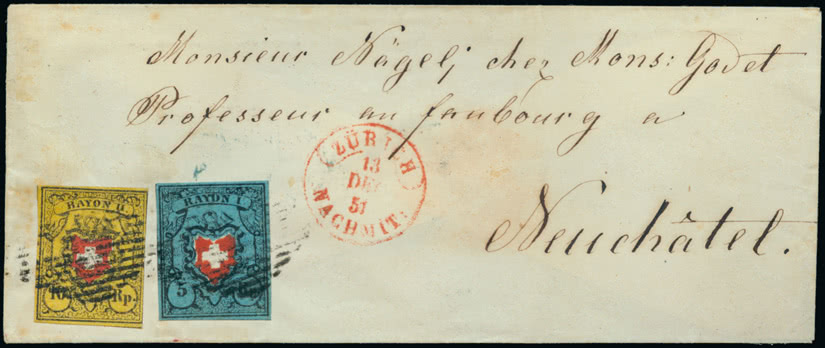 Monsieur Nägeli chez Mons: Godet
Professeur au faubourg a
Neuchâtel.
ZÜRICH
13
DEC
51
NACHMIT:
RAYON II.
10 Rp.
RAYON I.
5 Rp.